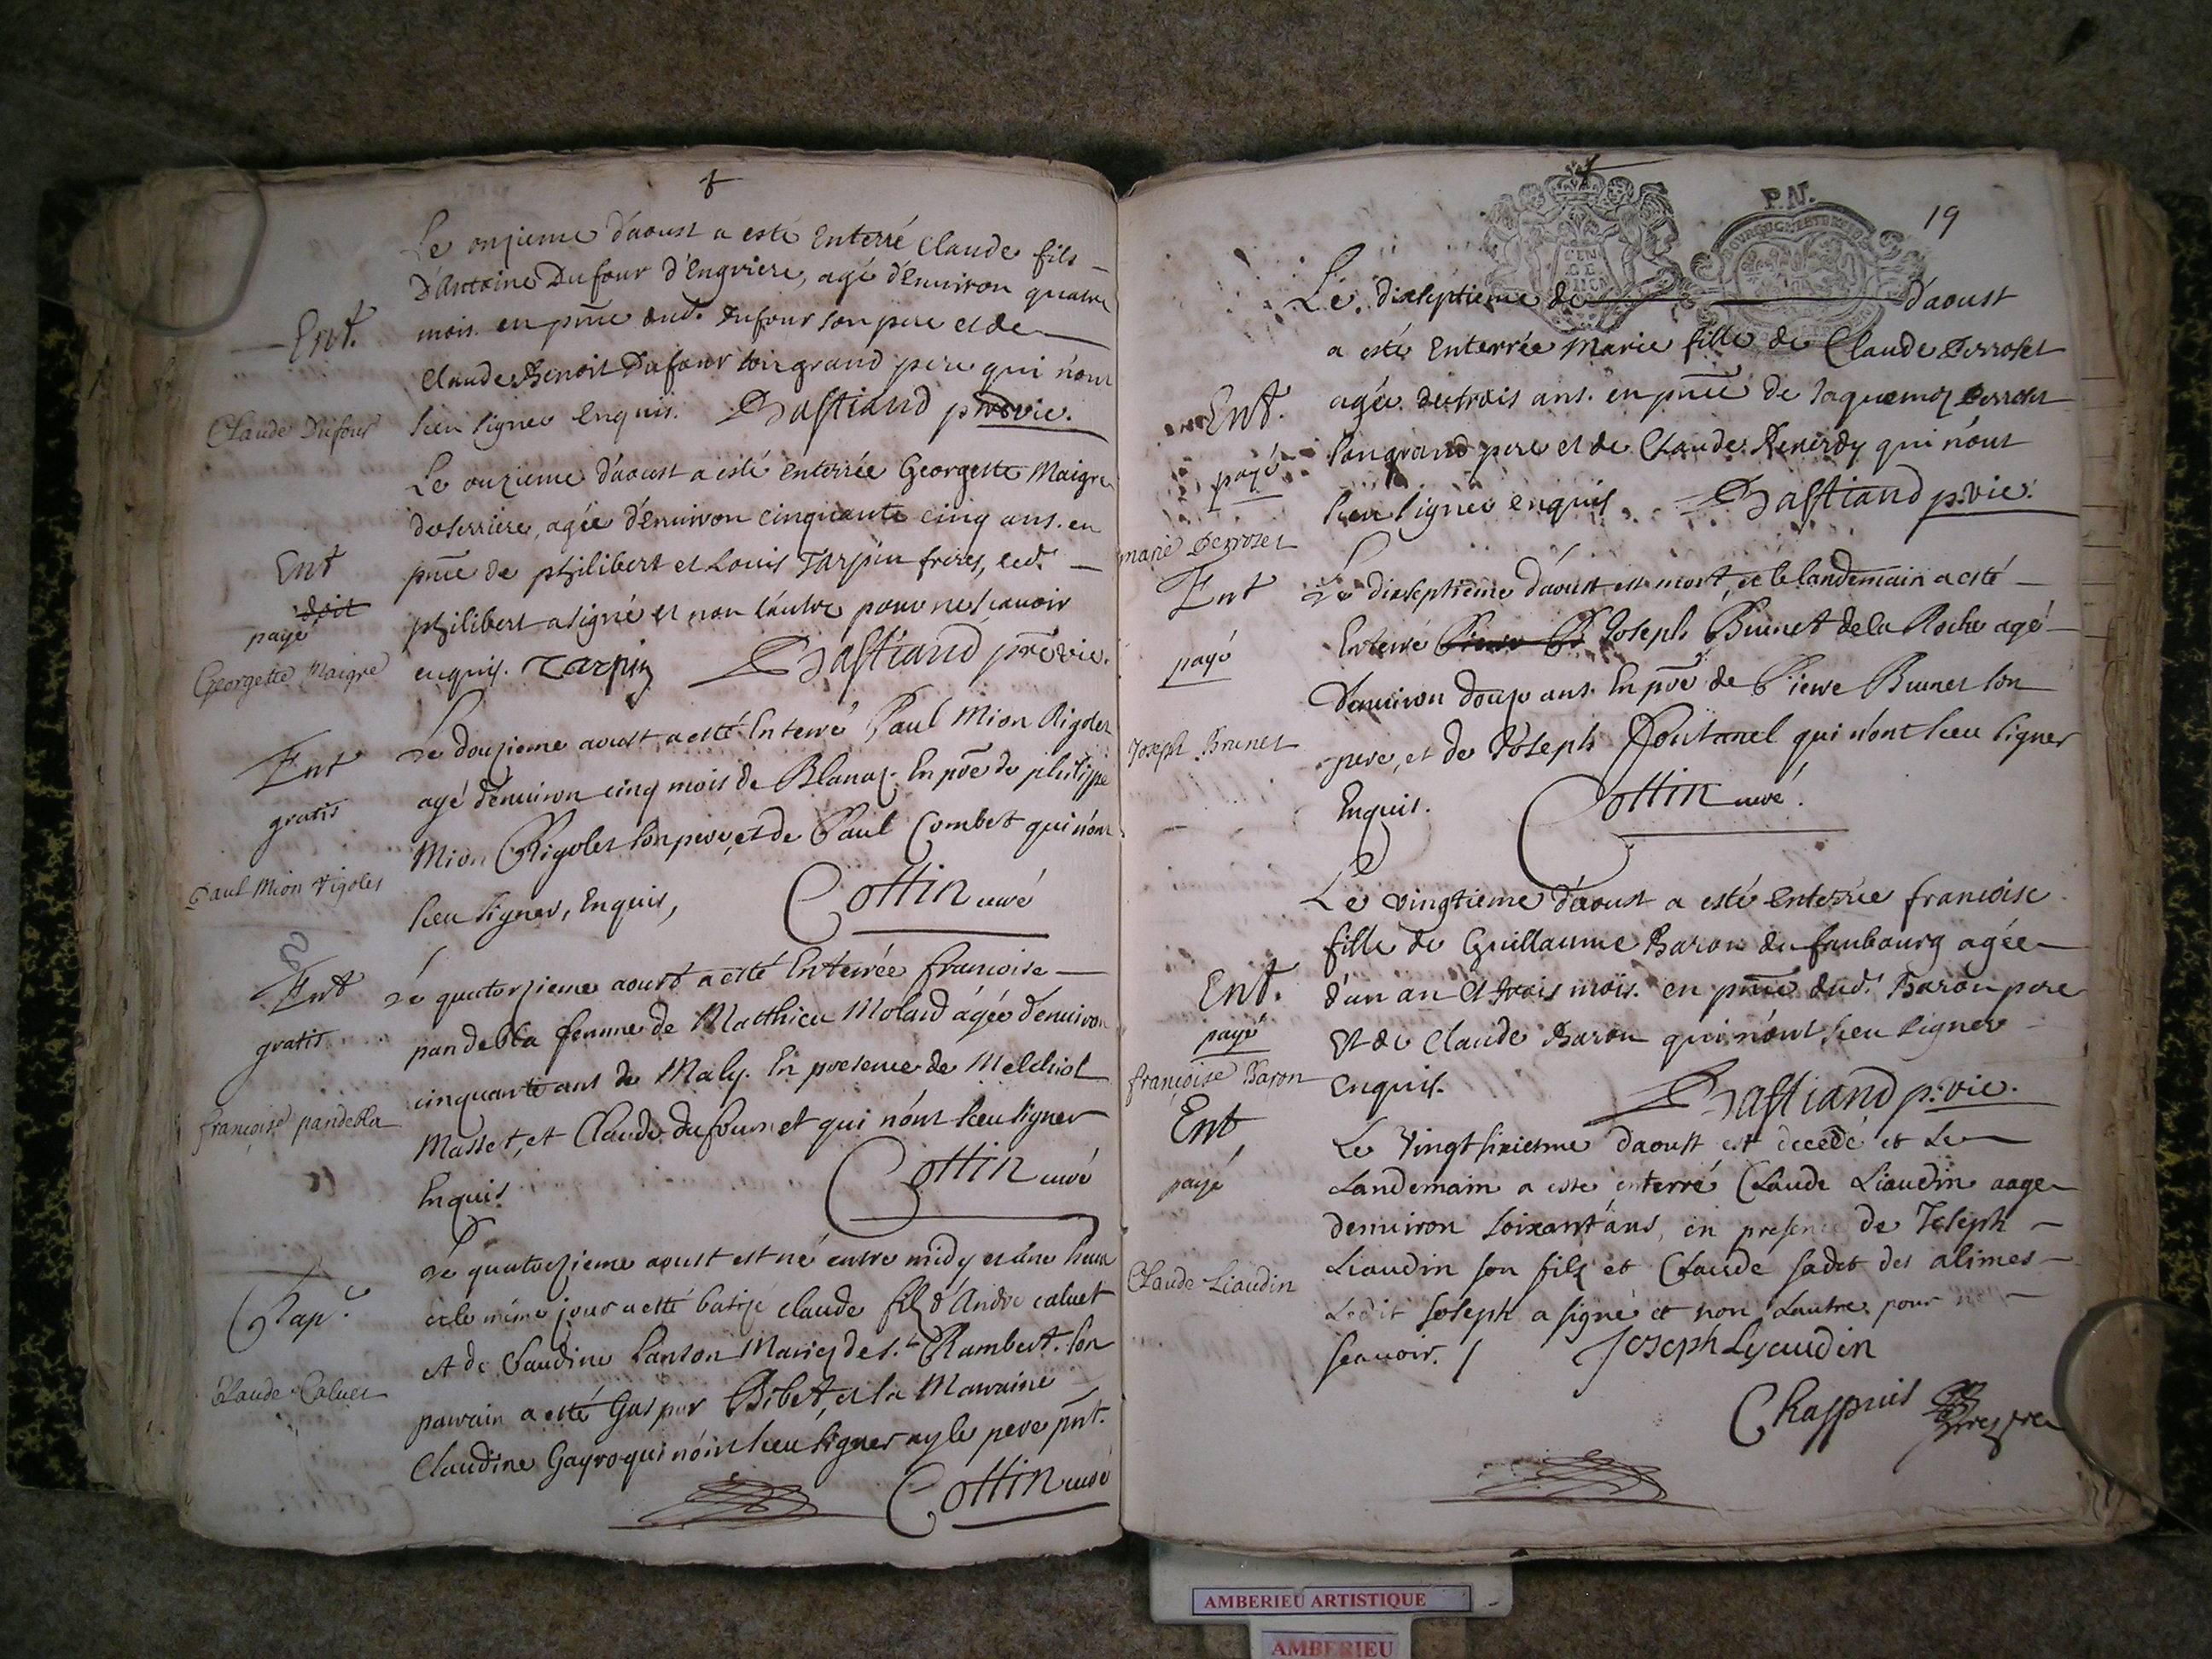 Le onzieme d'aoust a esté Enterré Claude fils
D'Antoine Dufour d'Engriere, agé d'Environ quatre
Ent.
mois. en pnce dud. Dufour son pere et de
Claude Benoit Dufour son grand pere qui n'ont
Claude Dufour
sceu signer Enquis. Bastiand vic.
Le onzieme d'aoust a esté enterrée Georgette Maigre
de serriere, agée d'Environ cinquante cinq ans. en
Ent
pnce de philibert et Louis Tarpin freres, led.
doit
payé
philibert a signé et non l'autre pour ne scavoir
Georgette Maigre
enquis. Tarpin Bastiand vic.
Le douzieme aoust a esté Enterré Paul Mion Rigolet
Ent
agé d'environ cinq mois de Blanaz. En pce de philippe
gratis
Mion Rigolet son pere, et de Paul Combet qui n'ont
Paul Mion Rigolet
sceu signer, Enquis, Cottin curé
Ent
Le quatorzieme aoust a esté Enterrée francoise
gratis
pandebla femme de Matthieu Molard agée d'environ
cinquante ans de Maly. En presence de Melchiol
françoise pandebla
Masset, et Claude dufournet qui n'ont sceu signer
Enquis. Cottin curé
Le quatorzieme aoust est né entre midy et une heure
Bap.
et le même jour a esté batisé claude filz d'André caluet
et de Claudine Lanson Mariez de s.t Rambert. son
Claude Caluet
parrain a esté Gaspar Bibet, et la Marraine
Claudine Gayro qui n'ont sceu signer ny le pere pnt.
Cottin curé
P.N.
19
Le dixseptieme de d'aoust
a esté Enterrée Marie fille de Claude Perroset
Ent.
agée de trois ans. en pnce de Jaquemoz Perroset
payé
son grand pere et de Claude Renerdy qui n'ont
sceu signer enquis. Bastiand p. vic.
marie Perroset
Ent
Le dixseptieme d'aoust est mort, et le landemain a esté
Enterré Joseph Brunet de la Roche agé
payé
d'environ douze ans. En pce de Pierre Brunet son
Joseph Brunet
pere, et de Joseph Fontanel qui n'ont sceu signer
Enquis. Cottin curé.
Le vingtieme d'aoust a esté enterrée francoise
fille de Guillaume Baron du faubourg agée
Ent.
d'un an et trois mois. en pnce dud. Baron pere
payé
et de Claude Baron qui n'ont sceu signer
françoise Baron
enquis. Bastiand p. vic.
Ent
Le Vingt sixiesme daoust est decedé et le
payé
Landemain a esté enterré Claude Liaudin aage
denviron soixant'ans, en presence de Joseph
Claude Liaudin
Liaudin son filz et Claude sadet des alimes
Ledit Joseph a signé et non Lautre pour ne
scavoir. / Joseph Lyaudin
Chappuis
AMBERIEU ARTISTIQUE
AMBERIEU